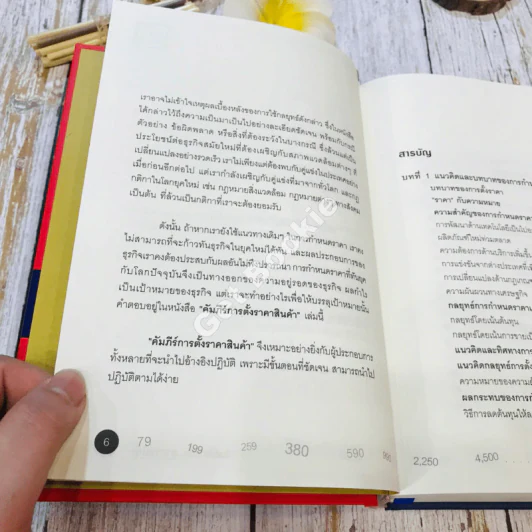 เราอาจไม่เข้าใจเหตุผลเบื้องหลังของการใช้กลยุทธ์ดังกล่าว ซึ่งในหนังสือ
ได้กล่าวไว้ถึงความเป็นมาเป็นไปอย่างละเอียดชัดเจน พร้อมกับกรณี
ตัวอย่าง ข้อผิดพลาด หรือสิ่งที่ต้องระวังในบางกรณี ซึ่งล้วนแต่เป็น
ประโยชน์ต่อธุรกิจสมัยใหม่ที่ต้องเผชิญกับสภาพแวดล้อมต่างๆ ที่
เปลี่ยนแปลงอย่างรวดเร็ว เราไม่เพียงแต่ต้องพบกับคู่แข่งในประเทศอย่าง
เมื่อก่อนอีกต่อไป แต่เรากำลังเผชิญกับคู่แข่งที่มาจากทั่วโลก และกฎ
กติกาในโลกยุคใหม่ เช่น กฎหมายสิ่งแวดล้อม กฎหมายต่างๆ ทางสังคม
เป็นต้น ที่ล้วนเป็นกติกาที่เราจะต้องยอมรับ
ดังนั้น ถ้าหากเรายังใช้แนวทางเดิมๆ ในการกำหนดราคา เราคง
ไม่สามารถที่จะก้าวทันธุรกิจในยุคใหม่ได้ทัน และผลประกอบการของ
ธุรกิจเราคงต้องประสบกับผลอันไม่พึงปรารถนา การกำหนดราคาที่ทันยุค
กับโลกปัจจุบันจึงเป็นทางออกของความอยู่รอดของธุรกิจ ผลกำไร
เป็นเป้าหมายของธุรกิจ แต่เราจะทำอย่างไรเพื่อให้บรรลุเป้าหมายนั้น
คำตอบอยู่ในหนังสือ "คัมภีร์การตั้งราคาสินค้า" เล่มนี้
"คัมภีร์การตั้งราคาสินค้า" จึงเหมาะอย่างยิ่งกับผู้ประกอบการ
ทั้งหลายที่จะนำไปอ้างอิงปฏิบัติ เพราะมีขั้นตอนที่ชัดเจน สามารถนำไป
ปฏิบัติตามได้ง่าย
6 79 199 259 380 590
สารบัญ
บทที่ 1 แนวคิดและบทบาทของการกำ
บทบาทของการตั้งราคา
"ราคา" กับความหมาย
ความสำคัญของการกำหนดราคา
การพัฒนาด้านเทคโนโลยีเป็นไป
ผลิตภัณฑ์ใหม่ท่วมตลาด
ความต้องการด้านบริการเพิ่มขึ้น
การแข่งขันจากต่างประเทศที่
การเปลี่ยนแปลงด้านกฎเกณ
ความผันผวนทางเศรษฐกิจ
กลยุทธ์การกำหนดราคาตาม
กลยุทธ์โดยเน้นต้นทุน
กลยุทธ์โดยเน้นการขายเป็น
แนวคิดและทิศทางการกำ
แนวคิดกลยุทธ์การตั้ง
ความหมายของความ
ผลกระทบของการกำ
วิธีการลดต้นทุนให้ล
2,250 4,500